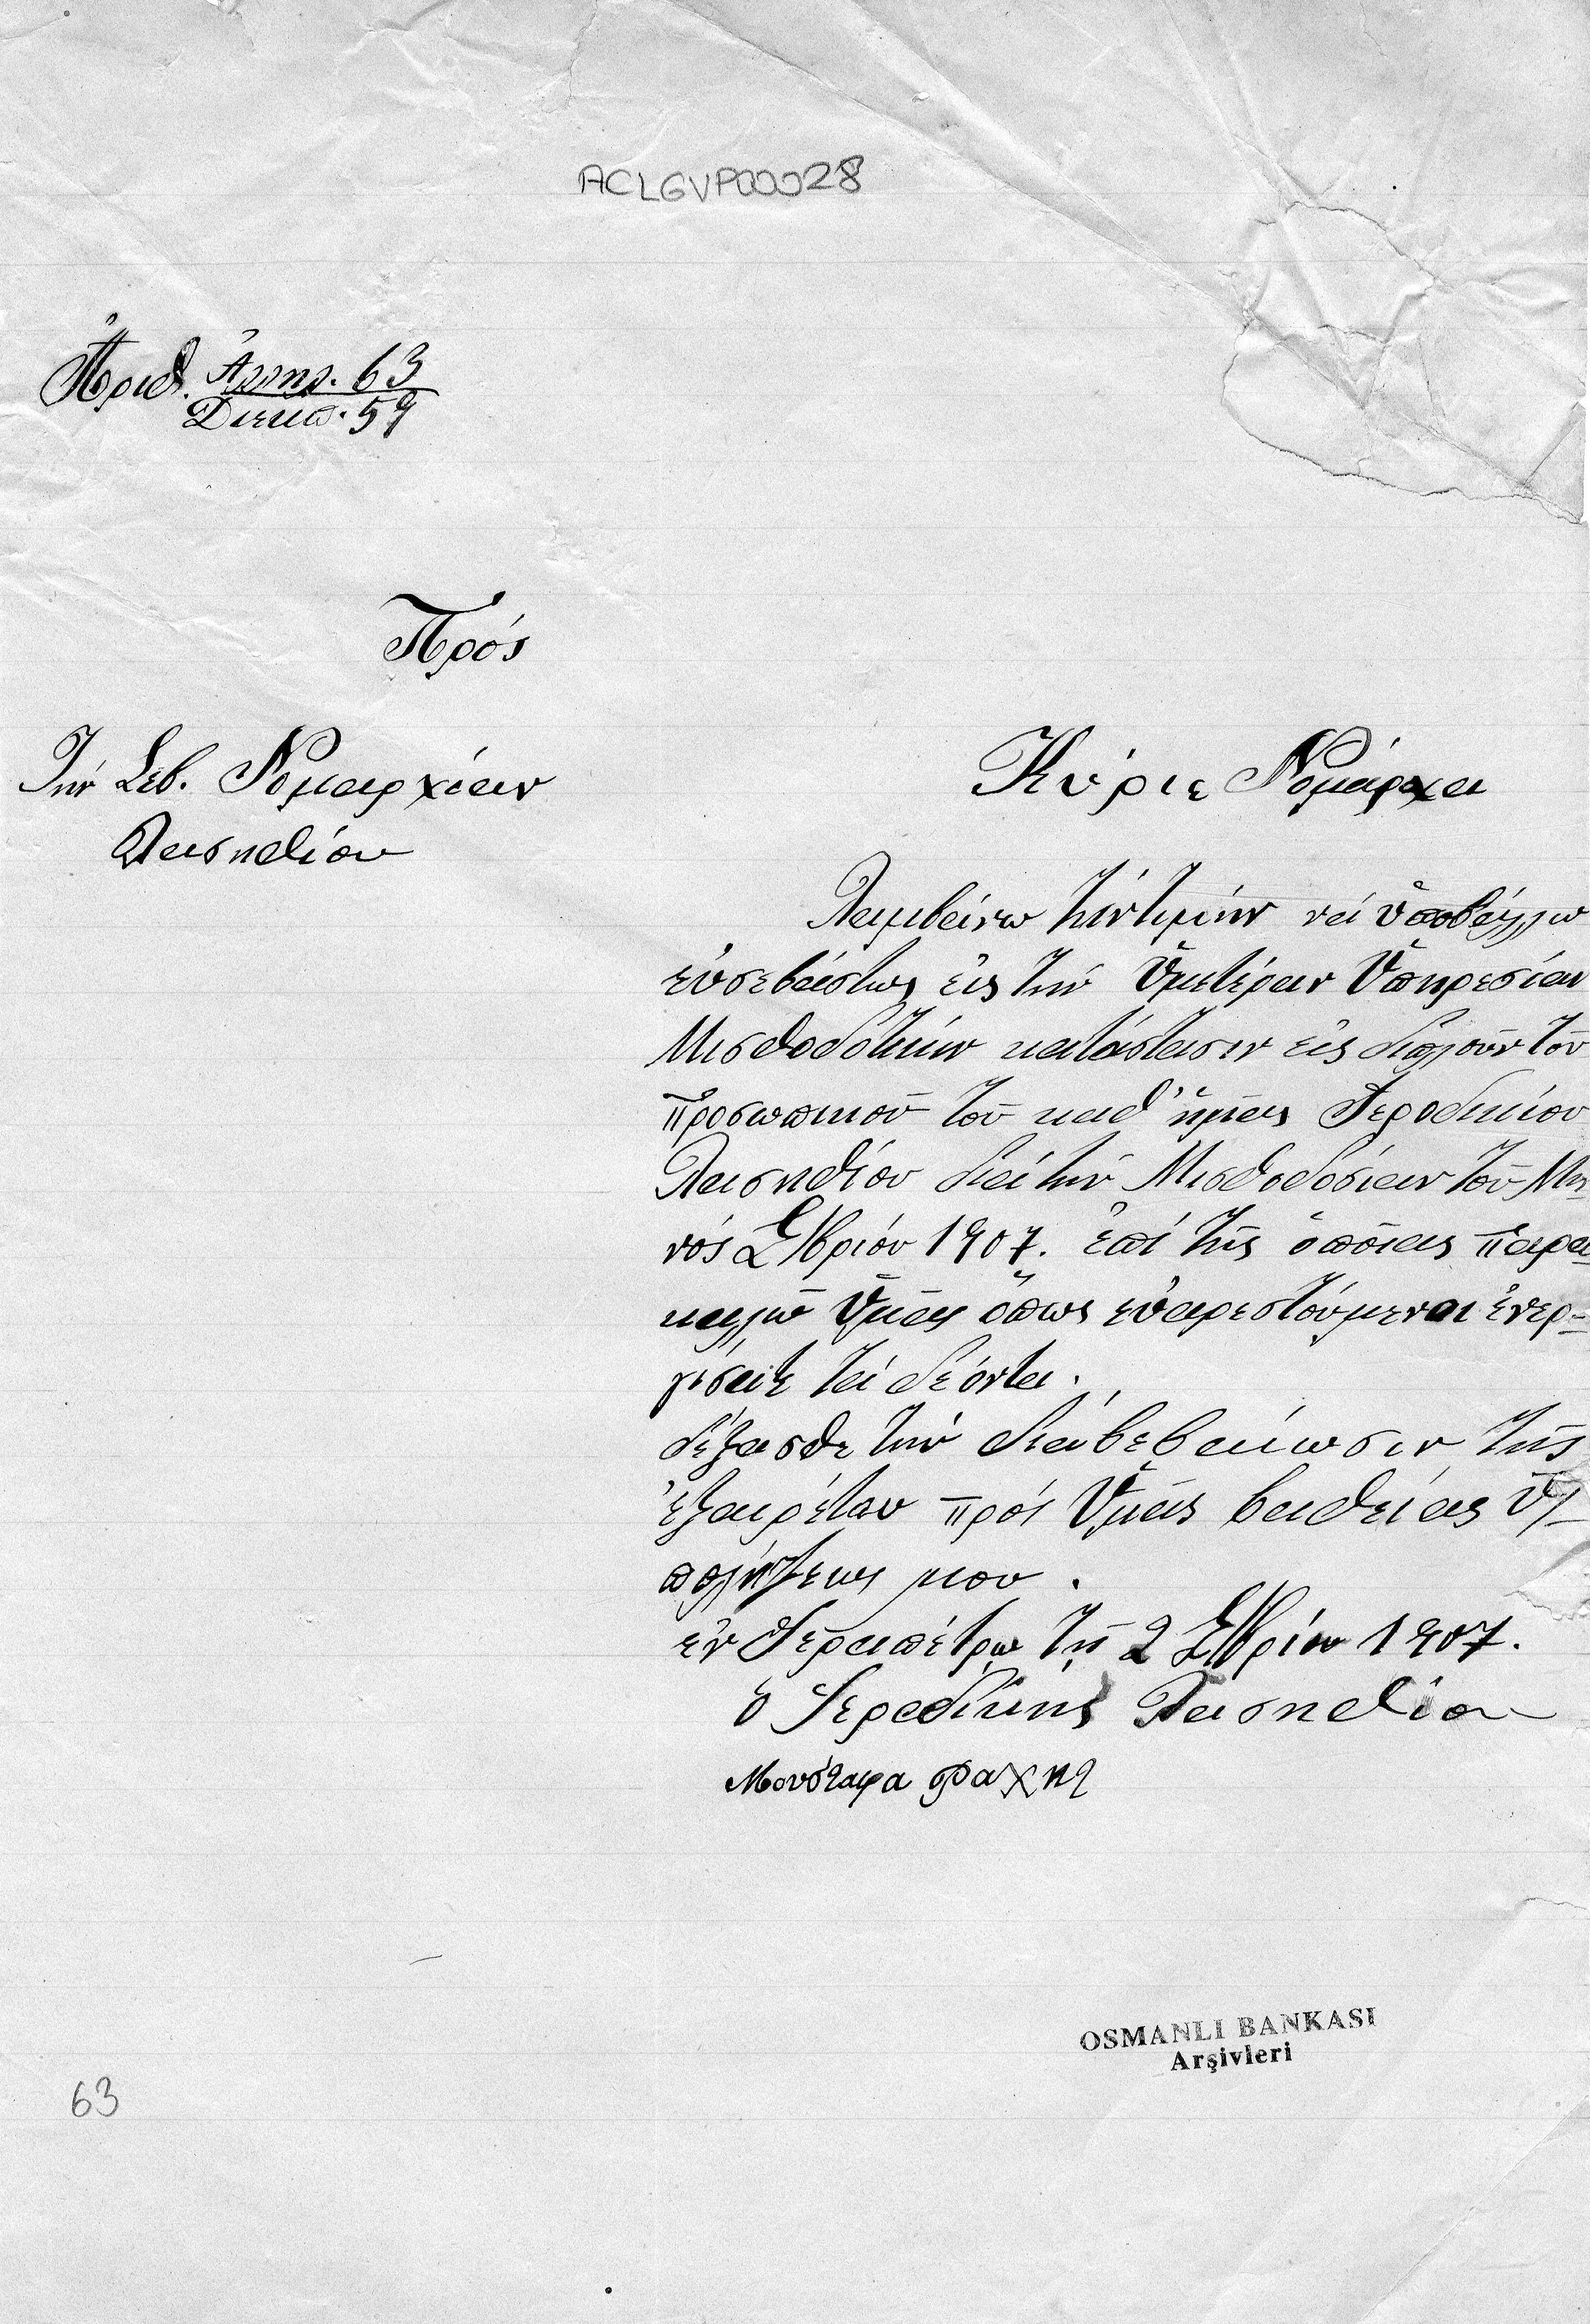 ACLGVP00028
Ἀριθ. Ἀλληλ. 63
Διεκπ. 59
Πρός
Τήν Σεβ. Νομαρχίαν
Λασηθίου
Κύριε Νομάρχα
Λαμβάνω τήν τιμήν νά ὑποβάλλω
εὐσεβάστως εἰς τήν Ὑμετέραν Ὑπηρεσίαν
Μισθοδοτικήν κατάστασιν εἰς διπλοῦν τοῦ
προσωπικοῦ τοῦ καθ' ἡμᾶς Ἱεροδικίου
Λασηθίου διά τήν Μισθοδοσίαν τοῦ Μη-
νός Σ/βρίου 1907. ἐπί τῆς ὁποίας παρα-
καλῶ Ὑμᾶς ὅπως εὐαρεστούμενοι ἐνερ=
γήσατε τά δέοντα.
δέξασθε τήν διαβεβαίωσιν τῆς
ἐξαιρέτου πρός Ὑμᾶς βαθείας ὑ-
πολήψεως μου.
ἐν Ἱεραπέτρῳ τῇ 2 Σ/βρίου 1907.
ὁ Ἱεροδίκης Λασηθίου
Μουσταφα Φαχκη
OSMANLI BANKASI
Arşivleri
63